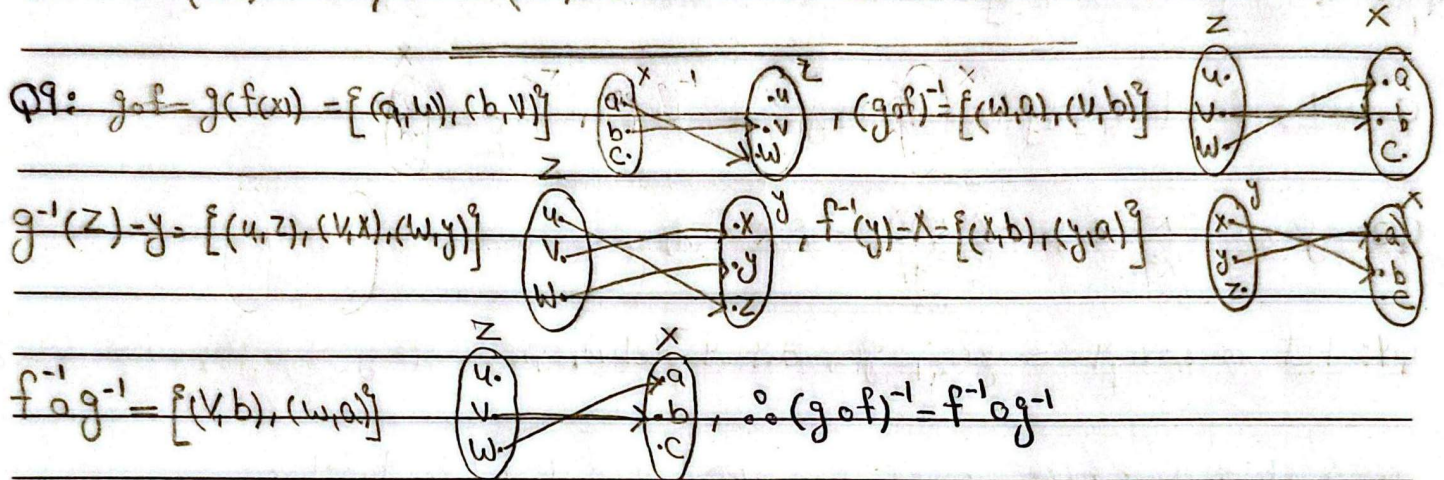 Z X
Q9: gof = g(f(x)) = {(a,w), (b,v)}, X a. b. c. Z .u .v .w, (gof)⁻¹ = {(w,a), (v,b)} u. v. w. .a .b c.
g⁻¹(Z) = y = {(u,z), (v,x), (w,y)} Z u. v. w. y .x .y .z, f⁻¹(y) = X = {(x,b), (y,a)} y x. y. z. X .a .b c
f⁻¹og⁻¹ = {(v,b), (w,a)} Z u. v. w. X .a .b .c, ∴ (gof)⁻¹ = f⁻¹og⁻¹